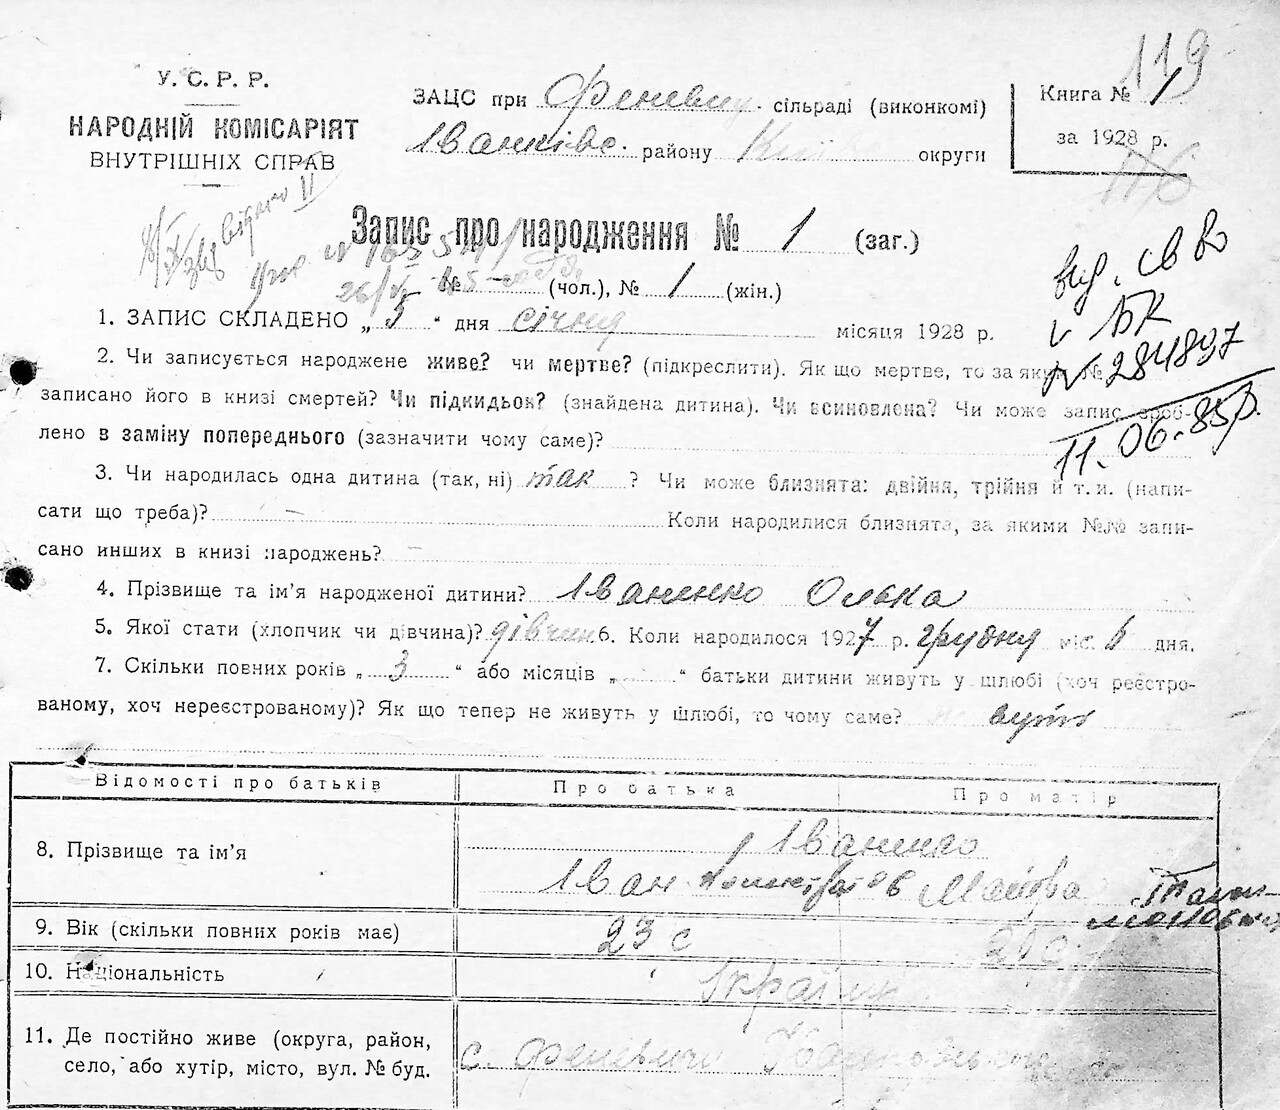 119
У. С. Р. Р.
НАРОДНІЙ КОМІСАРІЯТ
ВНУТРІШНІХ СПРАВ
ЗАЦС при Феневиц. сільраді (виконкомі)
Іванківс. району Київ округи
Книга № 1
за 1928 р.
116
Запис про народження № 1 (заг.)
№ (чол.), № 1 (жін.)
вид. св во
V БК
№ 284897
11.06.85р.
1. ЗАПИС СКЛАДЕНО „ 5 “ дня січня місяця 1928 р.
2. Чи записується народжене живе? чи мертве? (підкреслити). Як що мертве, то за яким №
записано його в книзі смертей? Чи підкидьок? (знайдена дитина). Чи всиновлена? Чи може запис зроб-
лено в заміну попереднього (зазначити чому саме)?
3. Чи народилась одна дитина (так, ні) так ? Чи може близнята: двійня, трійня й т. и. (напи-
сати що треба)? — Коли народилися близнята, за якими №№ запи-
сано инших в книзі народжень? —
4. Прізвище та ім’я народженої дитини? Іваненко Олька
5. Якої стати (хлопчик чи дівчина)? дівчин 6. Коли народилося 1927 р. грудня міс. 6 дня.
7. Скільки повних років „ 3 “ або місяців „ “ батьки дитини живуть у шлюбі (хоч реєстро-
ваному, хоч нереєстрованому)? Як що тепер не живуть у шлюбі, то чому саме?
Відомості про батьків Про батька Про матір
8. Прізвище та ім’я Іваненко
Іван
9. Вік (скільки повних років має) 23
10. Національність Україн
11. Де постійно живе (округа, район,
село, або хутір, місто, вул. № буд.
с. Феневичи